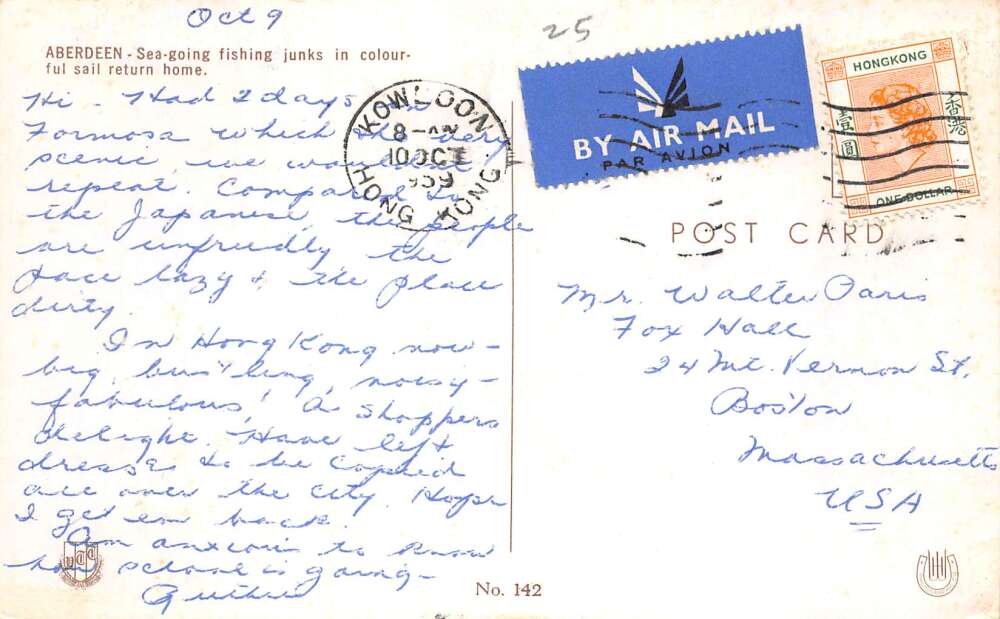 Oct 9
25
ABERDEEN - Sea-going fishing junks in colour-
ful sail return home.
Hi - Had 2 days
Formosa which
scenic we would
repeat. Compared to
the Japanese, the people
are unfriendly the
pace lazy & the place
dirty.
In Hong Kong now -
big, bustling, noisy -
fabulous! A shoppers
delight. Have left
dresses to be copied
all over the city. Hope
I get em back.
Am anxious to know
how school is going -
KOWLOON
8 - AM
10 OCT
1959
HONG KONG
BY AIR MAIL
PAR AVION
HONGKONG
香港
壹圓
ONE DOLLAR
POST CARD
Mr. Walter Paris
Fox Hall
24 Mt. Vernon St.
Boston
Massachusetts
USA
No. 142